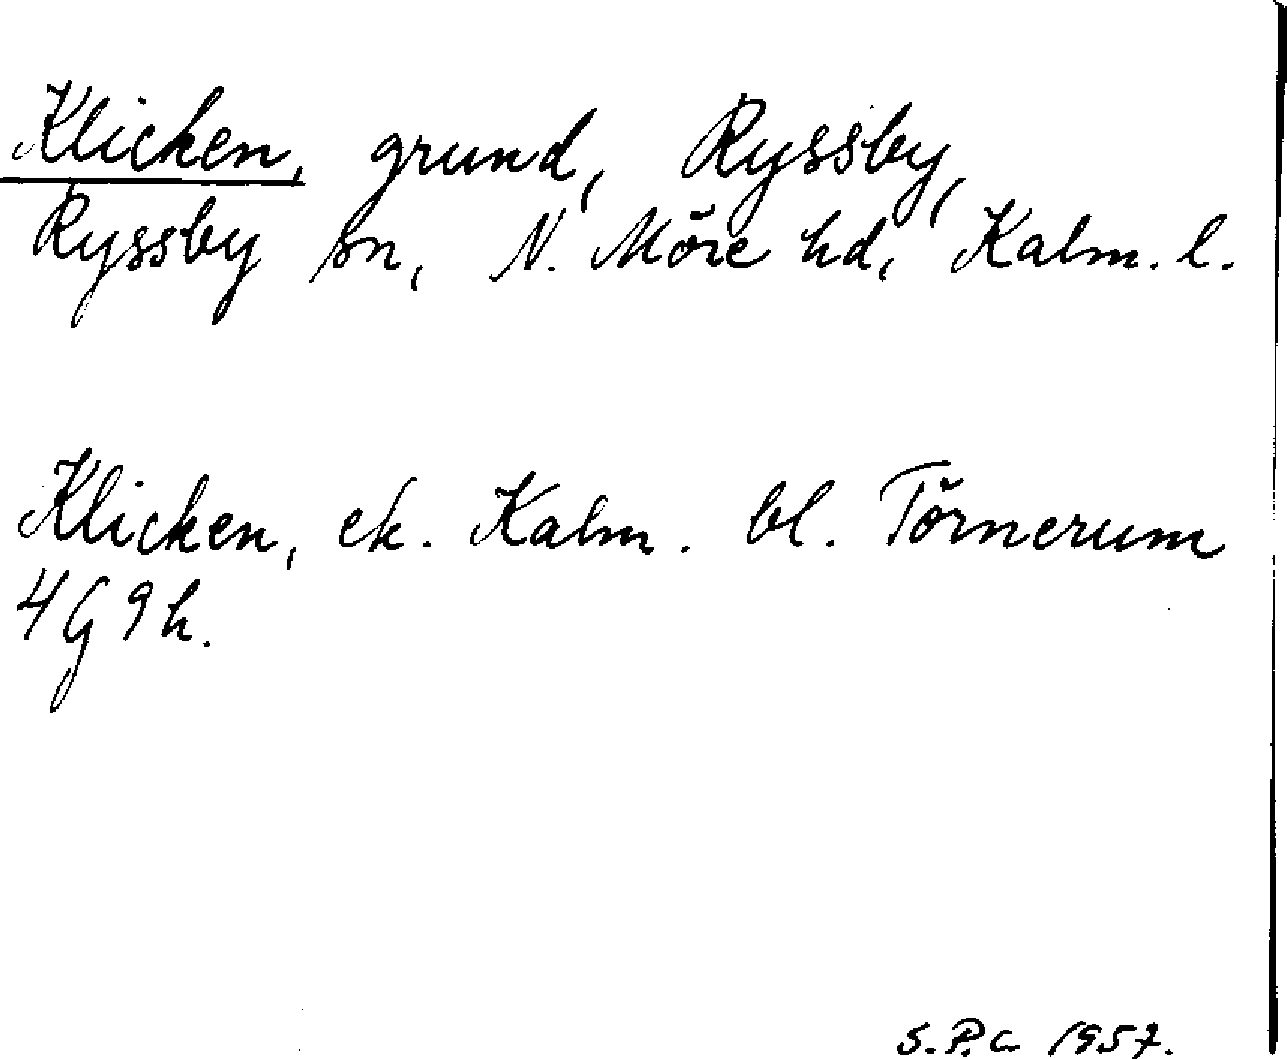 Klicken, grund, Ryssby,
Ryssby sn, N. Möre hd, Kalm. l.
Klicken, ek. Kalm. bl. Törnerum
4G9h.
S.P.C. 1957.